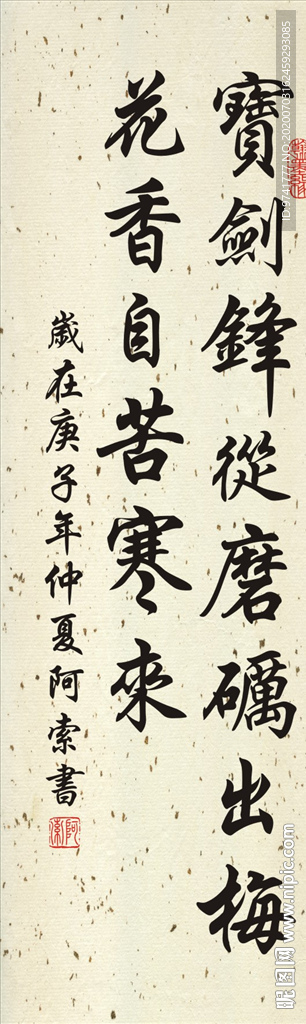 寶劍鋒從磨礪出梅
花香自苦寒來
歲在庚子年仲夏阿索書
阿索
ID:9741777 NO:20200703162459293085
昵图网 www.nipic.com